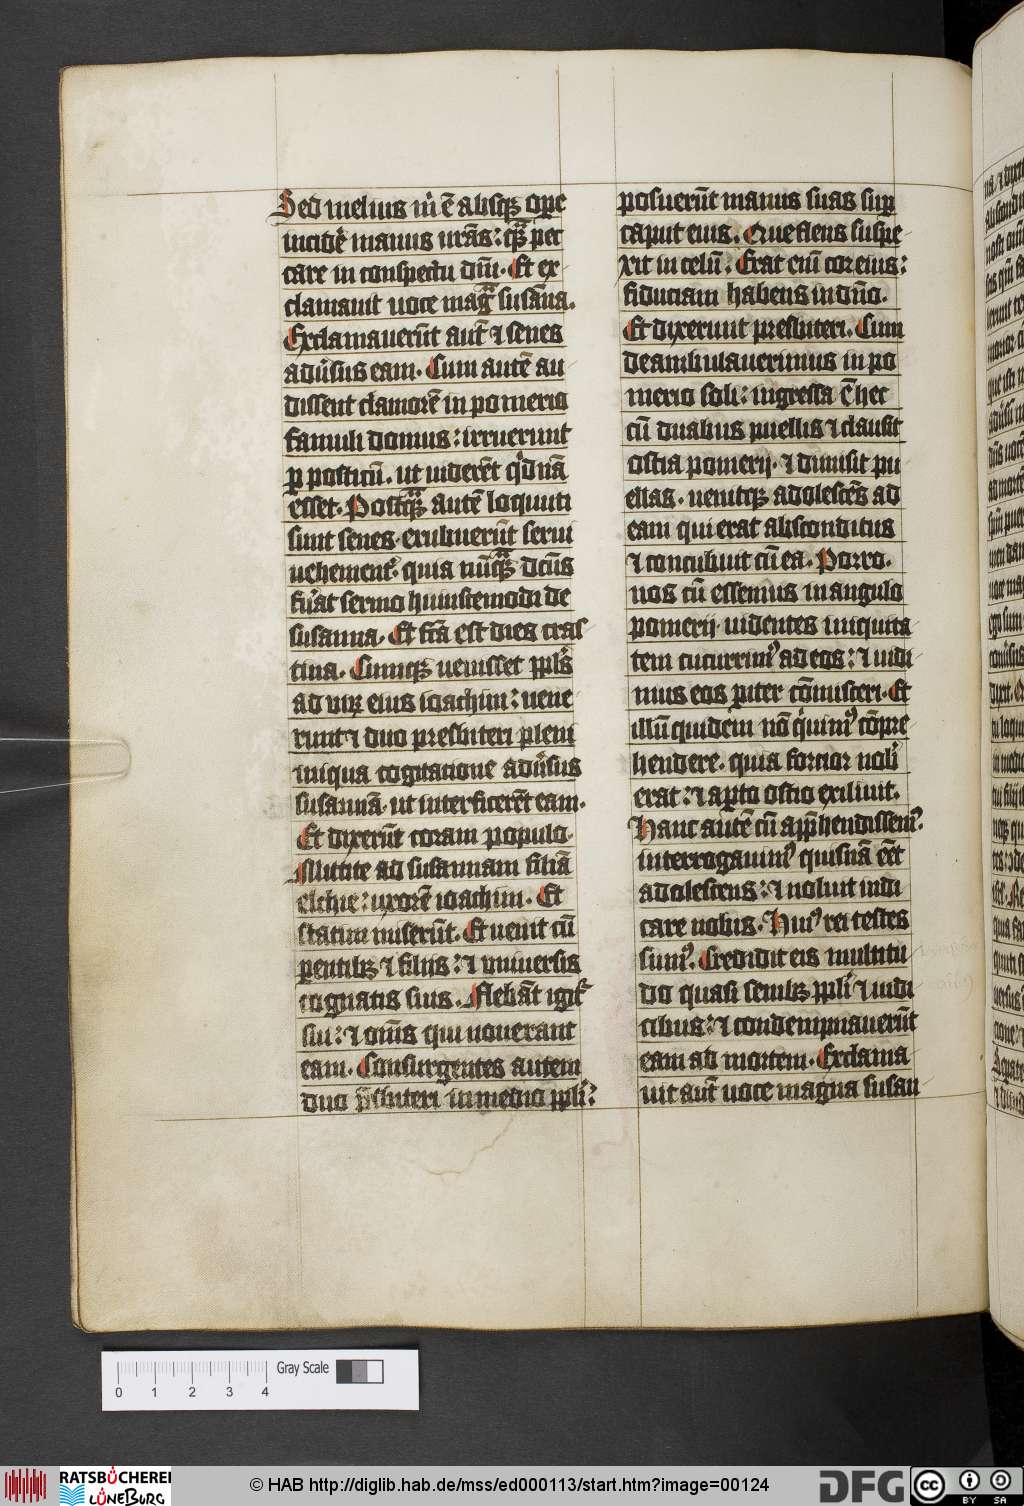 Sed melius m̅ e̅ absqȝ ope
incidē manus vr̃as: qȝ̃ pec
care in conspectu dn̅i. Et ex
clamauit uoce mag̃ susãna.
Exclamauerũt aut̃ ⁊ senes
adũsus eam. Cum autẽ au
dissent clamorẽ in pomerio
famuli domus: irruerunt
ꝑ posticũ. ut uiderẽt qͥdnã
esset. Postqȝ̃ autẽ loquuti
sunt senes. erubuerũt serui
uehement̾. quia nũqȝ̃ dictũs
fũat sermo huiuscemodi de
susanna. Et fc̃a est dies cras
tina. Cumqȝ uenisset ppl̾s
ad uiꝝ eius ioachim: uene
runt ⁊ duo presbiteri pleni
iniqua cogitatione adũsus
susannã. ut interficerẽt eam.
Et dixerũt coram populo.
Mittite ad susannam filiã
elchie: uxorẽ ioachim. Et
statim miserũt. Et uenit cũ
parentibȝ ⁊ filijs: ⁊ uniuersis
cognatis suis. Flebãt igit̾
sui: ⁊ om̃s qui nouerant
eam. Consurgentes autem
duo p̃sbiteri in medio ppl̾i:
posuerũt manus suas suꝑ
caput eius. Que flens suspe
xit in celũ. Erat eni̅ cor eius:
fiduciam habens in dño.
Et dixerunt presbiteri. Cum
deambularemus in po
merio soli: ingressa ẽ hec
cũ duabus puellis ⁊ clausit
ostia pomerij. ⁊ dimisit pu
ellas. uenitqȝ adolescẽs ad
eam qui erat absconditus
⁊ concubuit cũ ea. Porro.
nos cũ essemus in angulo
pomerij uidentes iniquita
tem cucurrimꝰ ad eos: ⁊ uidi
mus eos ꝑiter cõmisceri. Et
illũ quidem nõ qͥuimꝰ cõpre
hendere. quia fortior nob̾
erat: ⁊ aꝑto ostio exiliuit.
Hanc autẽ cũ app̃hendissemꝰ.
interrogauimꝰ quisnã eẽt
adolescens: ⁊ noluit indi
care nobis. Huiꝰ rei testes
sumꝰ. Credidit eis multitu
do quasi senibȝ ppl̾i ⁊ iudi
cibus: ⁊ condempnauerũt
eam ad mortem. Exclama
uit aut̃ uoce magna susan
Gray Scale
0 1 2 3 4
RATSBÜCHEREI
LÜNEBURG
© HAB http://diglib.hab.de/mss/ed000113/start.htm?image=00124
DFG
cc BY SA